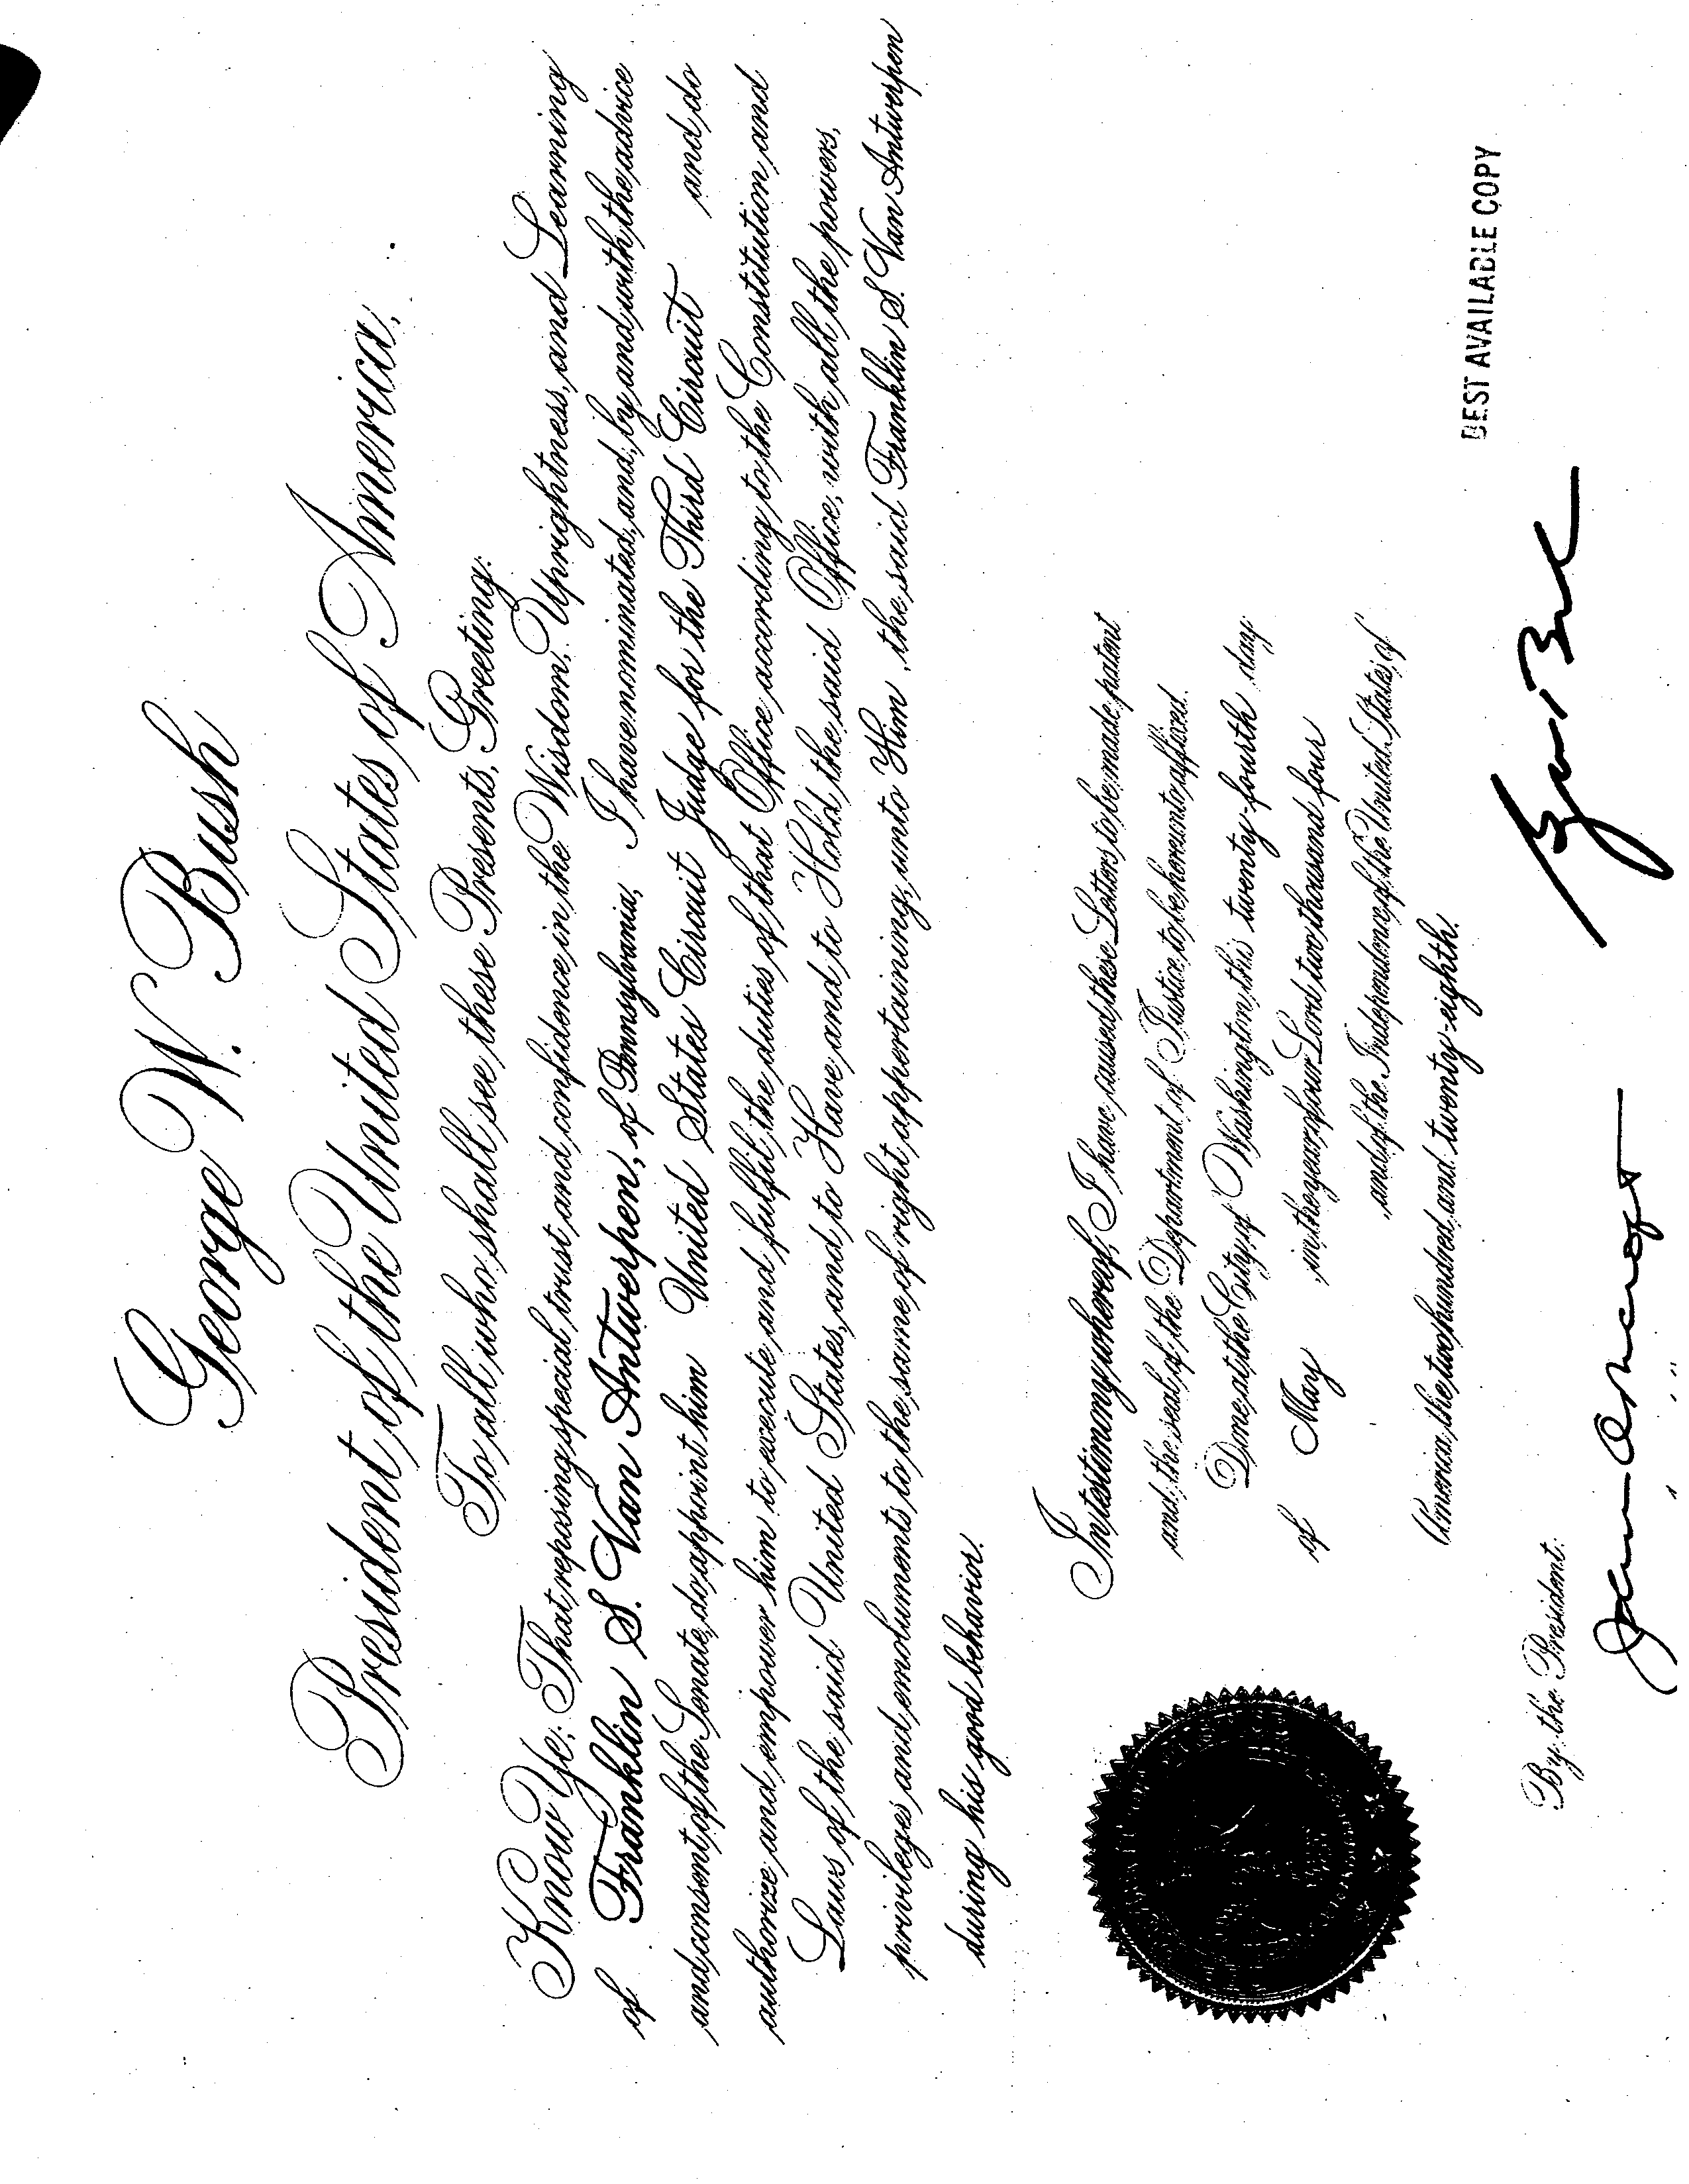 George W. Bush
President of the United States of America,
To all who shall see these Presents, Greeting:
Know Ye; That reposing special trust and confidence in the Wisdom, Uprightness, and Learning
of Franklin S. Van Antwerpen, of Pennsylvania, I have nominated, and, by and with the advice
and consent of the Senate, do appoint him United States Circuit Judge for the Third Circuit and do
authorize and empower him to execute and fulfil the duties of that Office according to the Constitution and
Laws of the said United States, and to Have and to Hold the said Office, with all the powers,
privileges and emoluments to the same of right appertaining, unto Him, the said Franklin S. Van Antwerpen
during his good behavior.
In testimony whereof, I have caused these Letters to be made patent
and the seal of the Department of Justice to be hereunto affixed.
Done at the City of Washington, this twenty-fourth day
of May in the year of our Lord two thousand four
and of the Independence of the United States of
America the two hundred and twenty-eighth.
BEST AVAILABLE COPY
By the President: